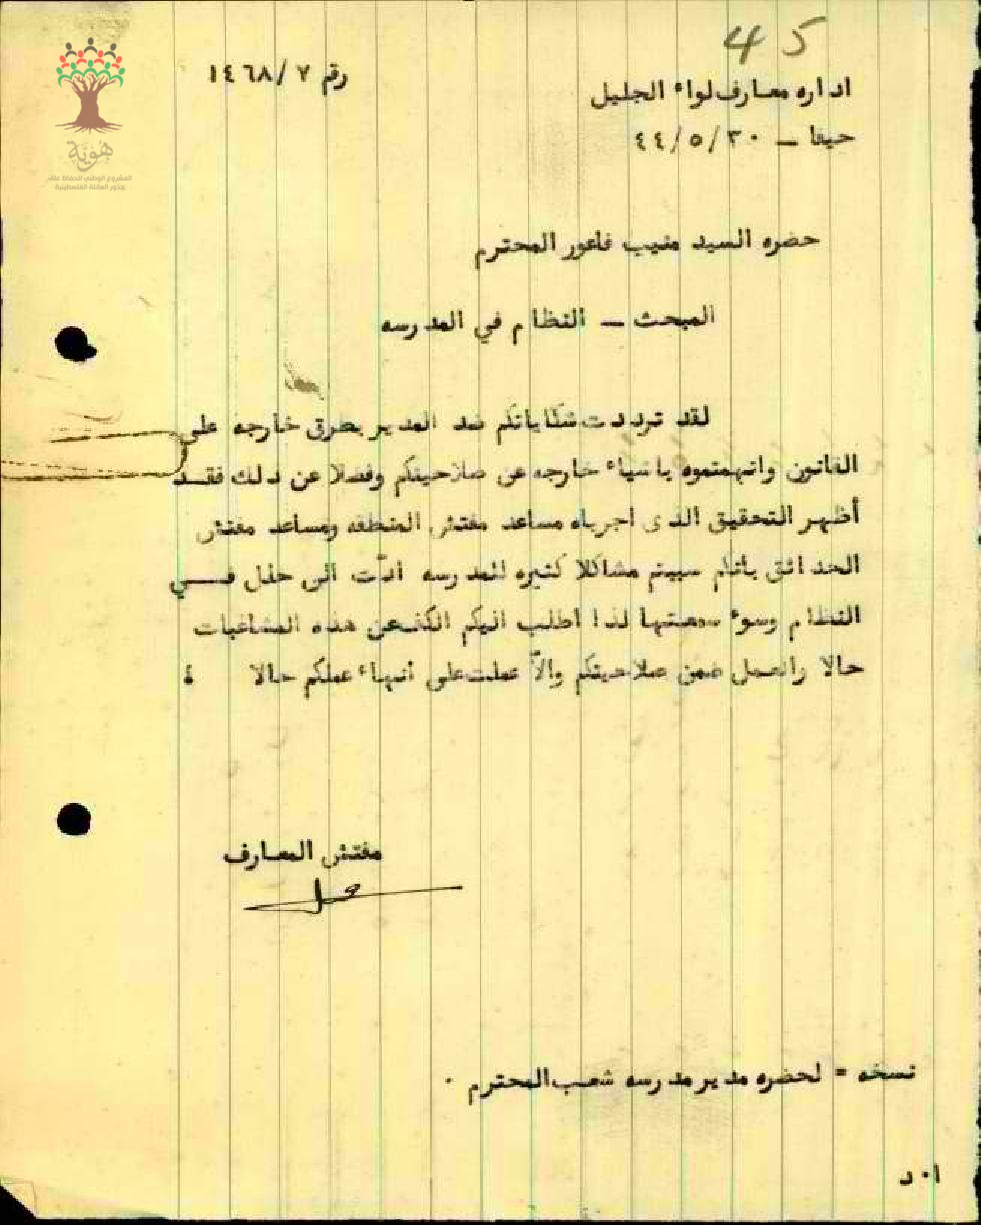 45
رقم ١٤٦٨/٧
اداره معارف لواء الجليل
حيفا – ٤٤/٥/٣٠
هُوِيَّة
المشروع الوطني للحفاظ على
جذور العائلة الفلسطينية
حضره السيد منيب فاعور المحترم
المبحث – النظام في المدرسه
لقد ترددت شكاياتكم ضد المدير بطرق خارجه على
القانون واتهمتموه باشياء خارجه عن صلاحيتكم وفضلا عن ذلك فقد
أظهر التحقيق الذى اجرياه مساعد مفتش المنطقه ومساعد مفتش
الحدائق بانكم سببتم مشاكلا كثيره للمدرسه ادّت الى خلل في
النظام وسوء سمعتها لذا اطلب اليكم الكف عن هذه المشاغبات
حالا والعمل ضمن صلاحيتكم والاّ عملت على انهاء عملكم حالا
مفتش المعارف
نسخه = لحضره مدير مدرسه شعب المحترم ٠
ا٠د